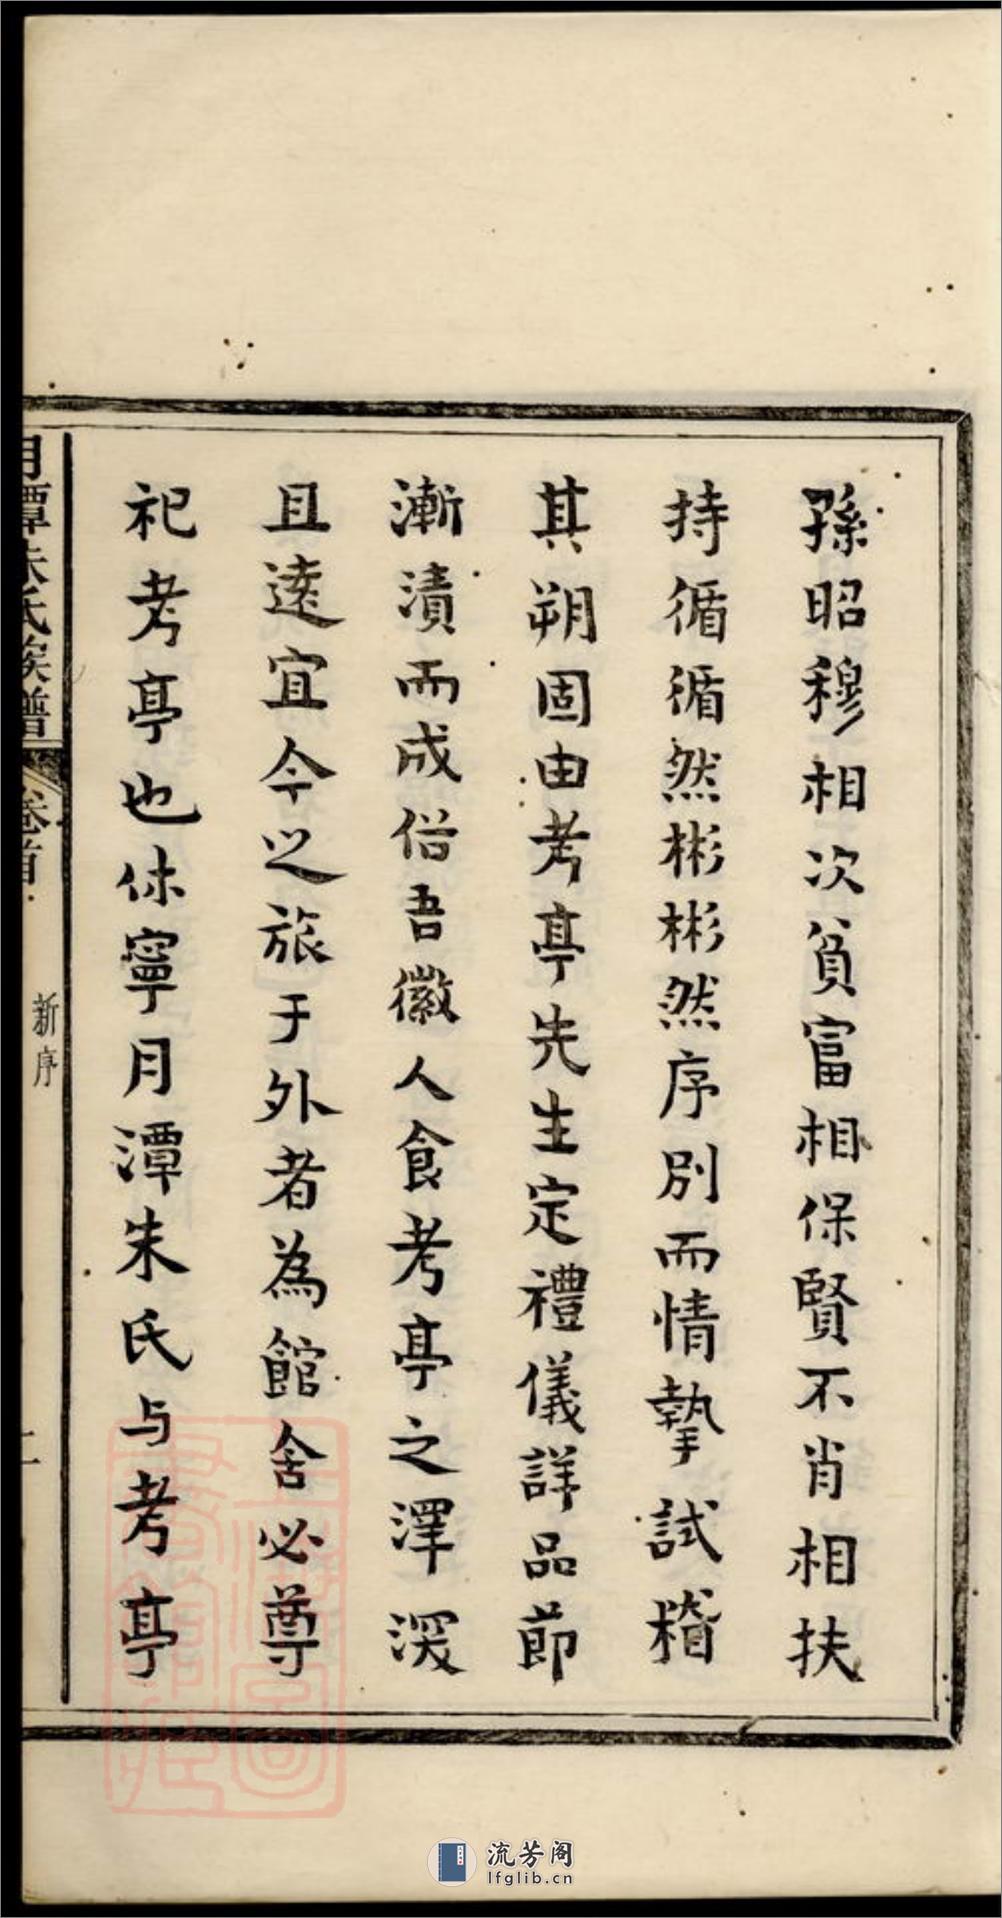 孫昭穆相次貧富相保賢不肖相扶
持循循然彬彬然序別而情摯試稽
其朔固由考亭先生定禮儀詳品節
漸漬而成俗吾徽人食考亭之澤深
且遠宜今之旅于外者為館舍必尊
祀考亭也休寧月潭朱氏与考亭
月潭朱氏族譜
卷首
新序
二
流芳阁
lfglib.cn